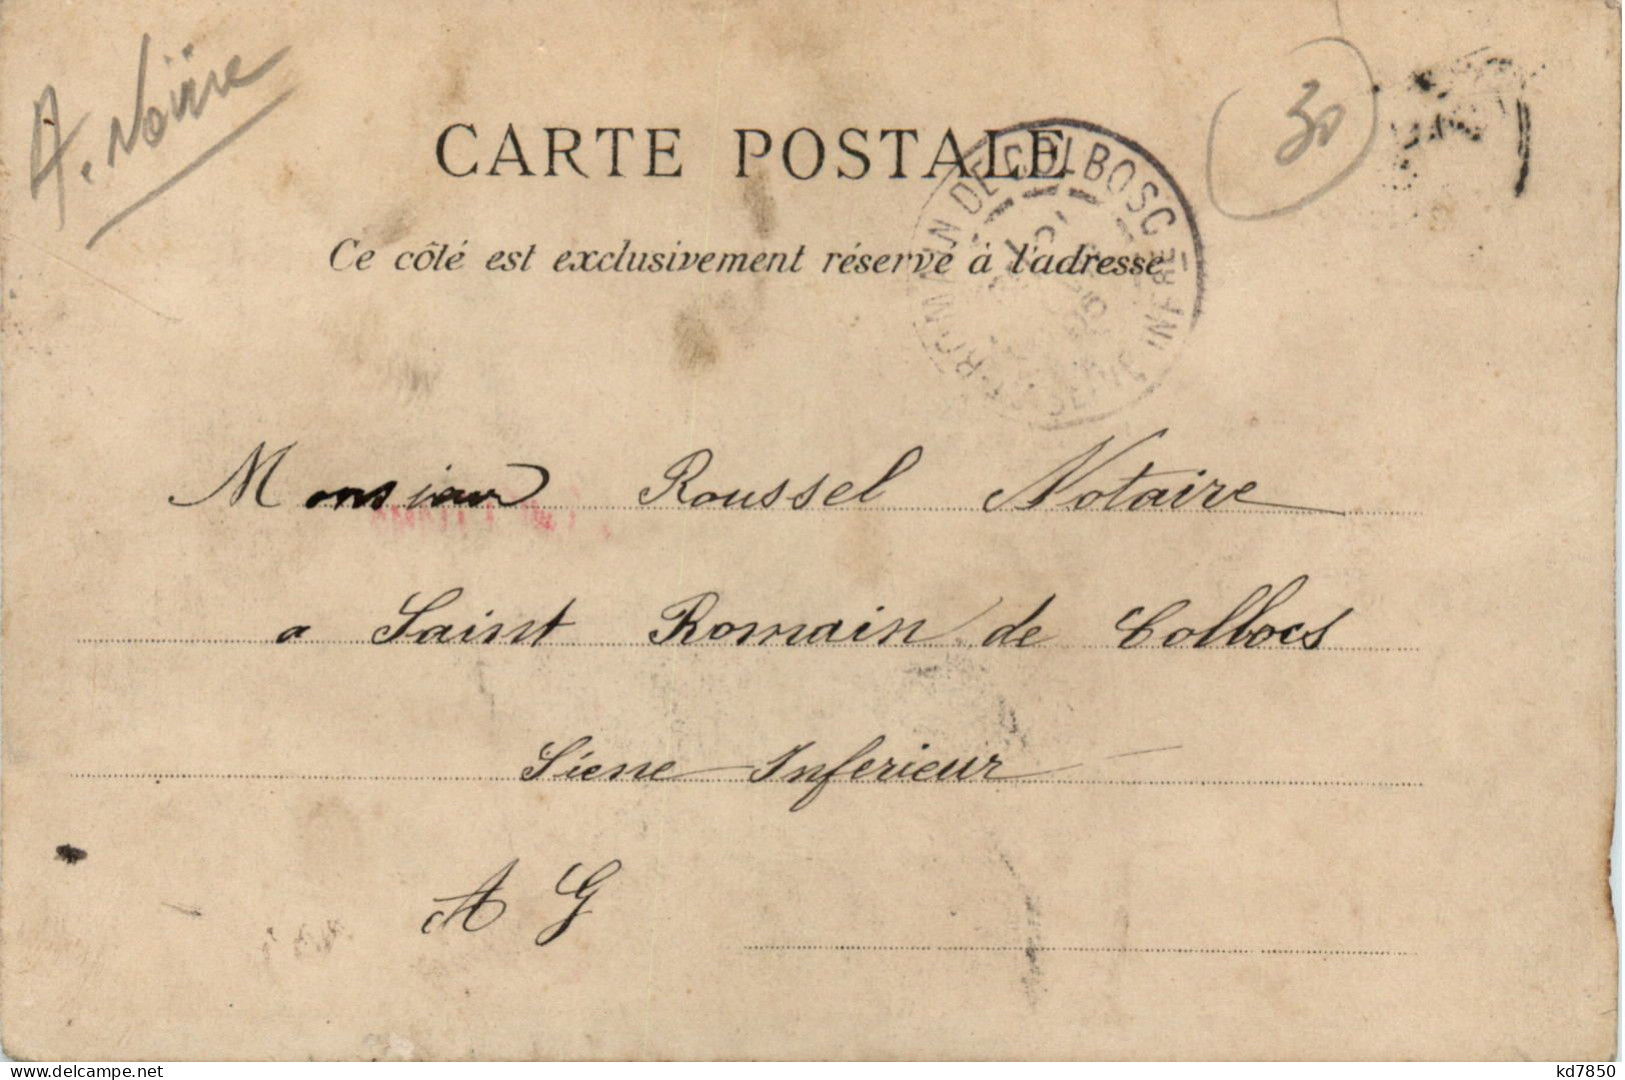 A. Noire
30
CARTE POSTALE
Ce côté est exclusivement réservé à l'adresse
ROMAIN DE COLBOSC
INFRE
Monsieur Roussel Notaire
a Saint Romain de Colbocs
Siene Inferieur
A G
kd7850